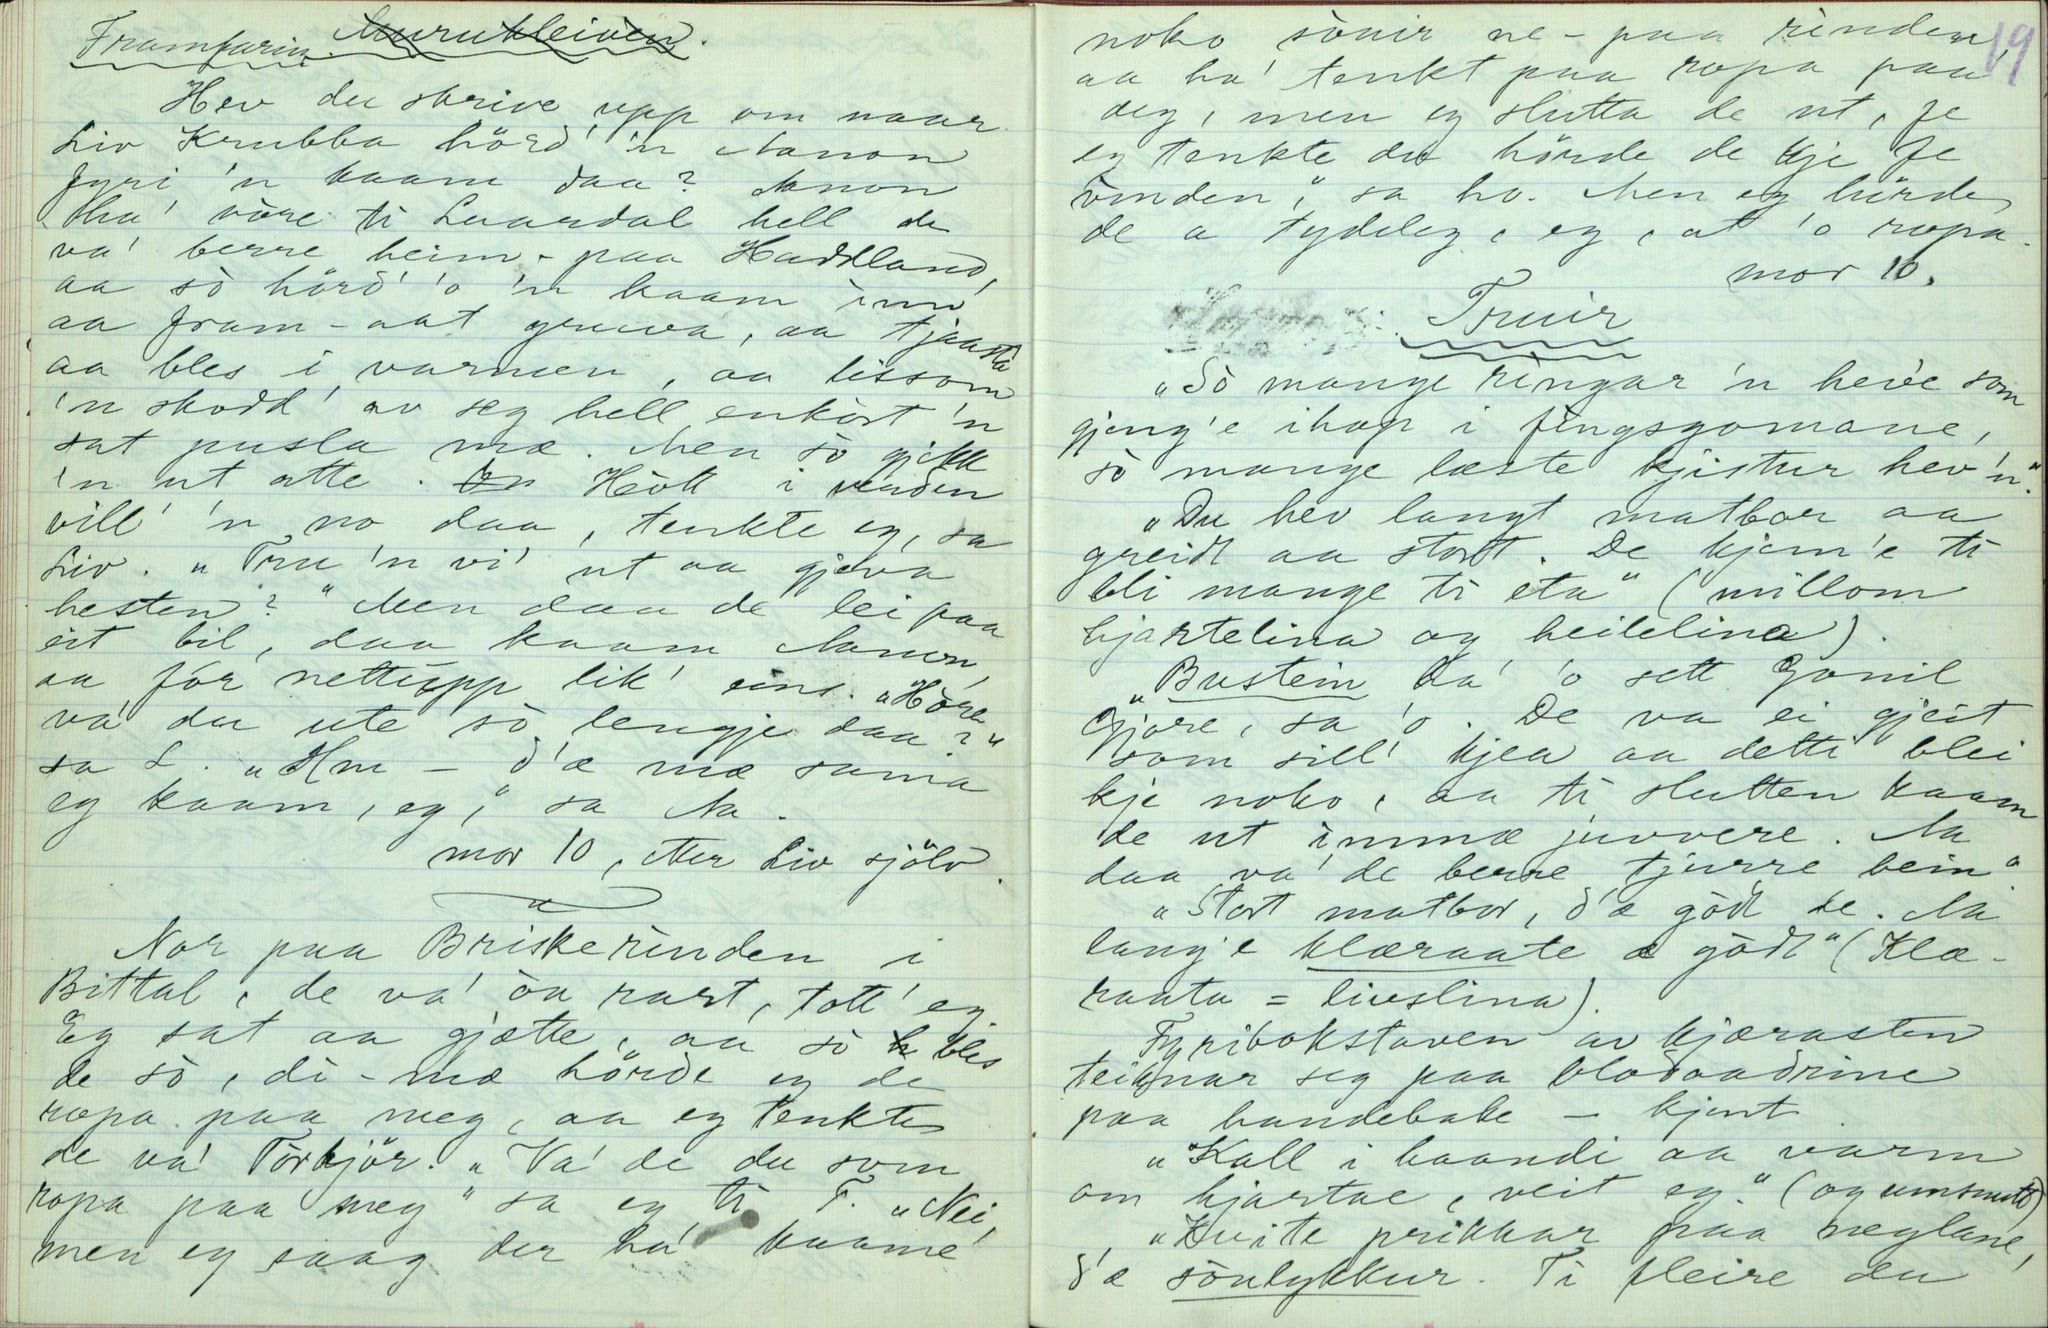 Framfarin. Murukleiven.
Hev du skrive upp om naar
Liv Krubba hörd' 'n Aanon
fyri 'n kaam daa? Aanon
ha' vòre ti Laardal hell de
va' berre heim-paa Haddland,
aa sò hörd' 'o 'n kaam inn'
aa fram-aat gruva, aa tjaasta
aa bles i varmen, aa lissom
'n skodd' av seg hell enkòrt 'n
sat pusla mæ. Men sò gjekk
'n ut atte. Hòtt i venden
vill' 'n no daa, tenkte eg, sa
Liv. „Tru 'n vi' ut aa gjeva
hesten?" Men daa de lei paa
eit bil, daa kaam Aanon,
aa fór nettupp lik' eins. „Hòre
va' du ute sò lengje daa?"
sa L. „Hm – d'æ mæ sama
eg kaam, eg," sa Aa.
mor 10, etter Liv sjölv.
Nor paa Briskerinden i
Bittal, de va' òa rart, tott' eg.
Eg sat aa gjætte, aa sò bles
de sò, di-mæ hörde eg de
ropa paa meg, aa eg tenkte
de va' Torbjör. „Va' de du som
ropa paa meg" sa eg ti T. „Nei,
men eg saag der ha' kaame'
19
noko sòuir ne-paa rinden,
aa ha' tenkt paa ropa paa
deg, men eg slutta de ut, fe
eg tenkte du hörde de kje fe
vinden," sa ho. Men eg hörde
de a tydeleg, eg, at 'o ropa.
mor 10.
Truir
„Sò mange ringar 'n heve som
gjeng'e ihop i fingsgomane,
sò mange læste kjistur hev 'n."
„Du hev langt matbor aa
greidt aa stort. De kjem'e ti
bli mange ti eta" (millom
hjartelina og heilelina).
„Bustein ha' 'o sett Gonil
Gjòre, sa 'o. De va ei gjeit
som sill' kjea aa detti blei
kje noko, aa ti slutten kaam
de ut immæ juvvere. Aa
daa va' de berre tjurre bein"
„Stort matbor, d'æ gòdt de. Aa
lang'e klæraate æ gòdt" (Klæ-
raata = livslina).
Fyribokstaven av kjærasten
teiknar seg paa blodaadrine
paa handebake – kjent
„Kall i haandi aa varm
om hjartae, veit eg." (og umsnutt)
„Kvite prikkar paa neglane,
d'æ sònlykkur. Ti fleire du